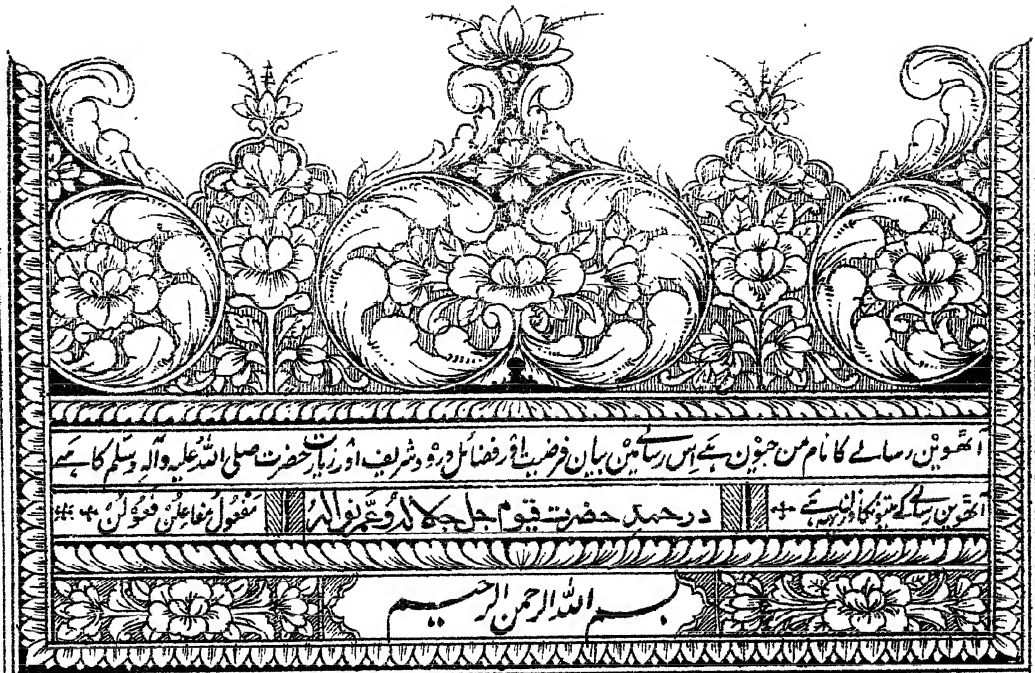 آٹھوین رسالے کا نام من جیون ہے اس رسالے مین بیان فرضیت اور فضائل درود شریف اور زیارت حضرت صلی اللہ علیہ وآلہ وسلم کا ہے
آٹھوین رسالے کے بیتونکا وزن یہہ ہے در حمد حضرت قیوم جل جلالہ وعم نوالہ مَفْعُولُ مَفَاعِلُنْ فَعُوْلُنْ
بسم اللہ الرحمن الرحیم